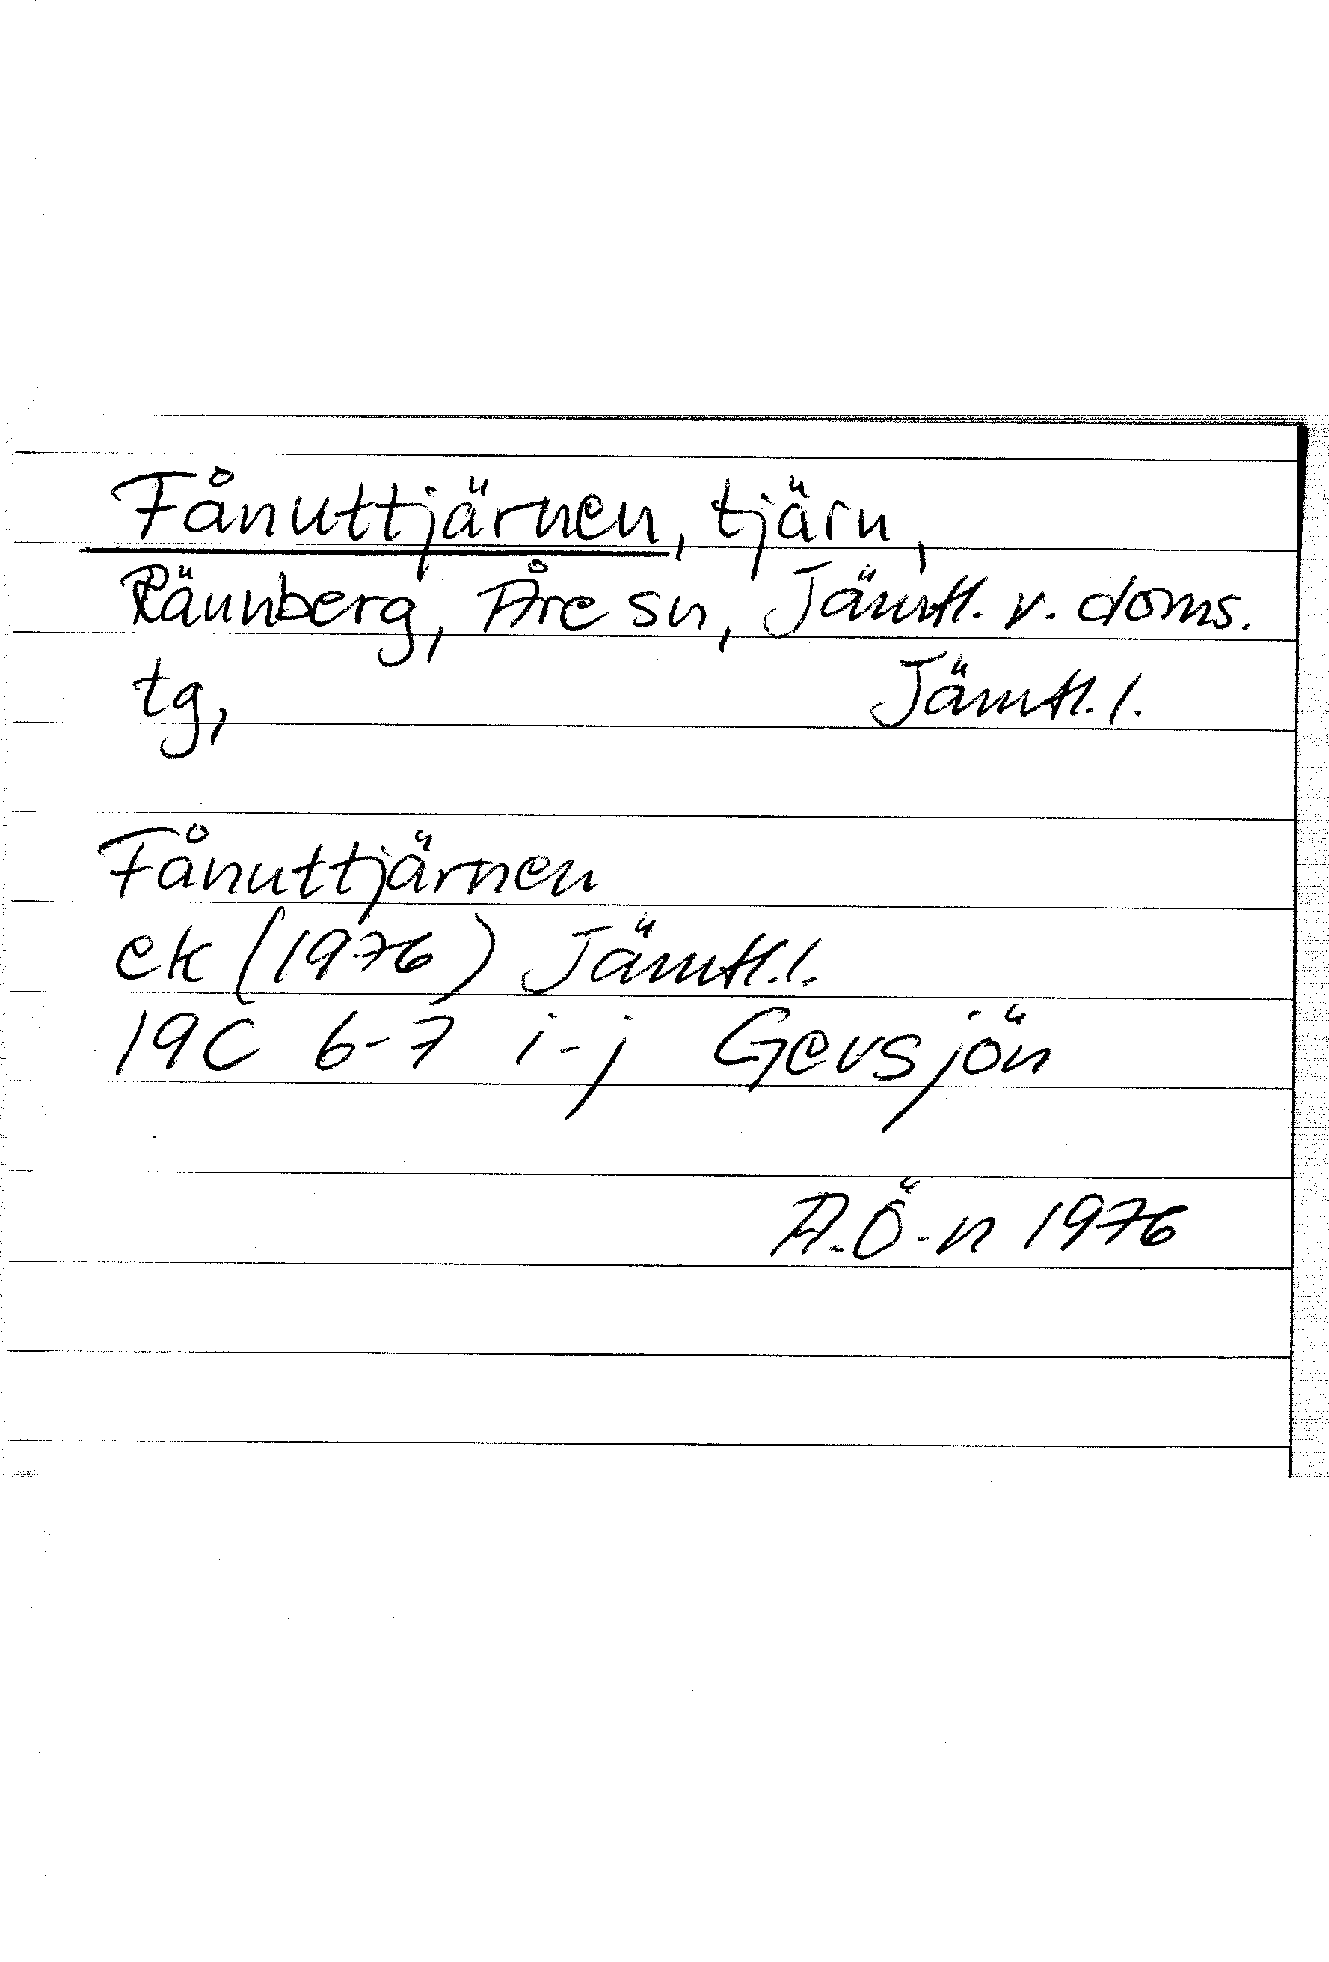 Fånuttjärnen, tjärn,
Rännberg, Åre sn, Jämtl. v. doms.
tg, Jämtl. l.
Fånuttjärnen
ek (1976) Jämtl. l.
19C 6-7 i-j Gevsjön
A.Ö-n 1976